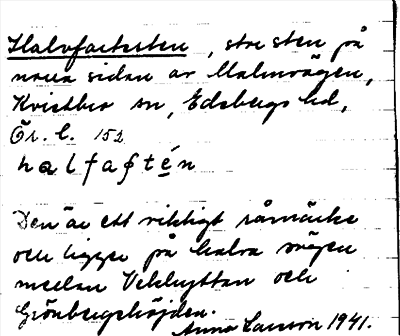 Halvfartsten, stor sten på
norra sidan av Malmvägen,
Kvistbro sn, Edsbergs hd,
Ör. l. 152
halfaſtén
Den är ett viktigt råmärke
och ligger på halva vägen
mellan Vekhyttan och
Grönbergshöjden.
Anna Larsson 1941.